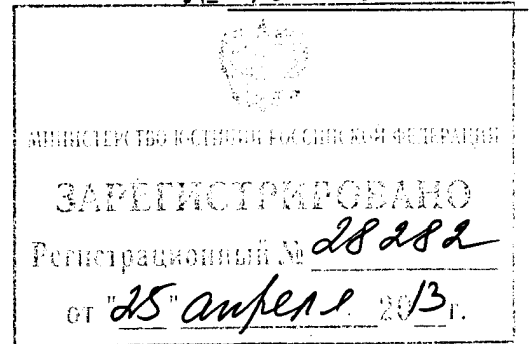 МИНИСТЕРСТВО ЮСТИЦИИ РОССИЙСКОЙ ФЕДЕРАЦИИ
ЗАРЕГИСТРИРОВАНО
Регистрационный № 28282
от "25" апреля 2013 г.